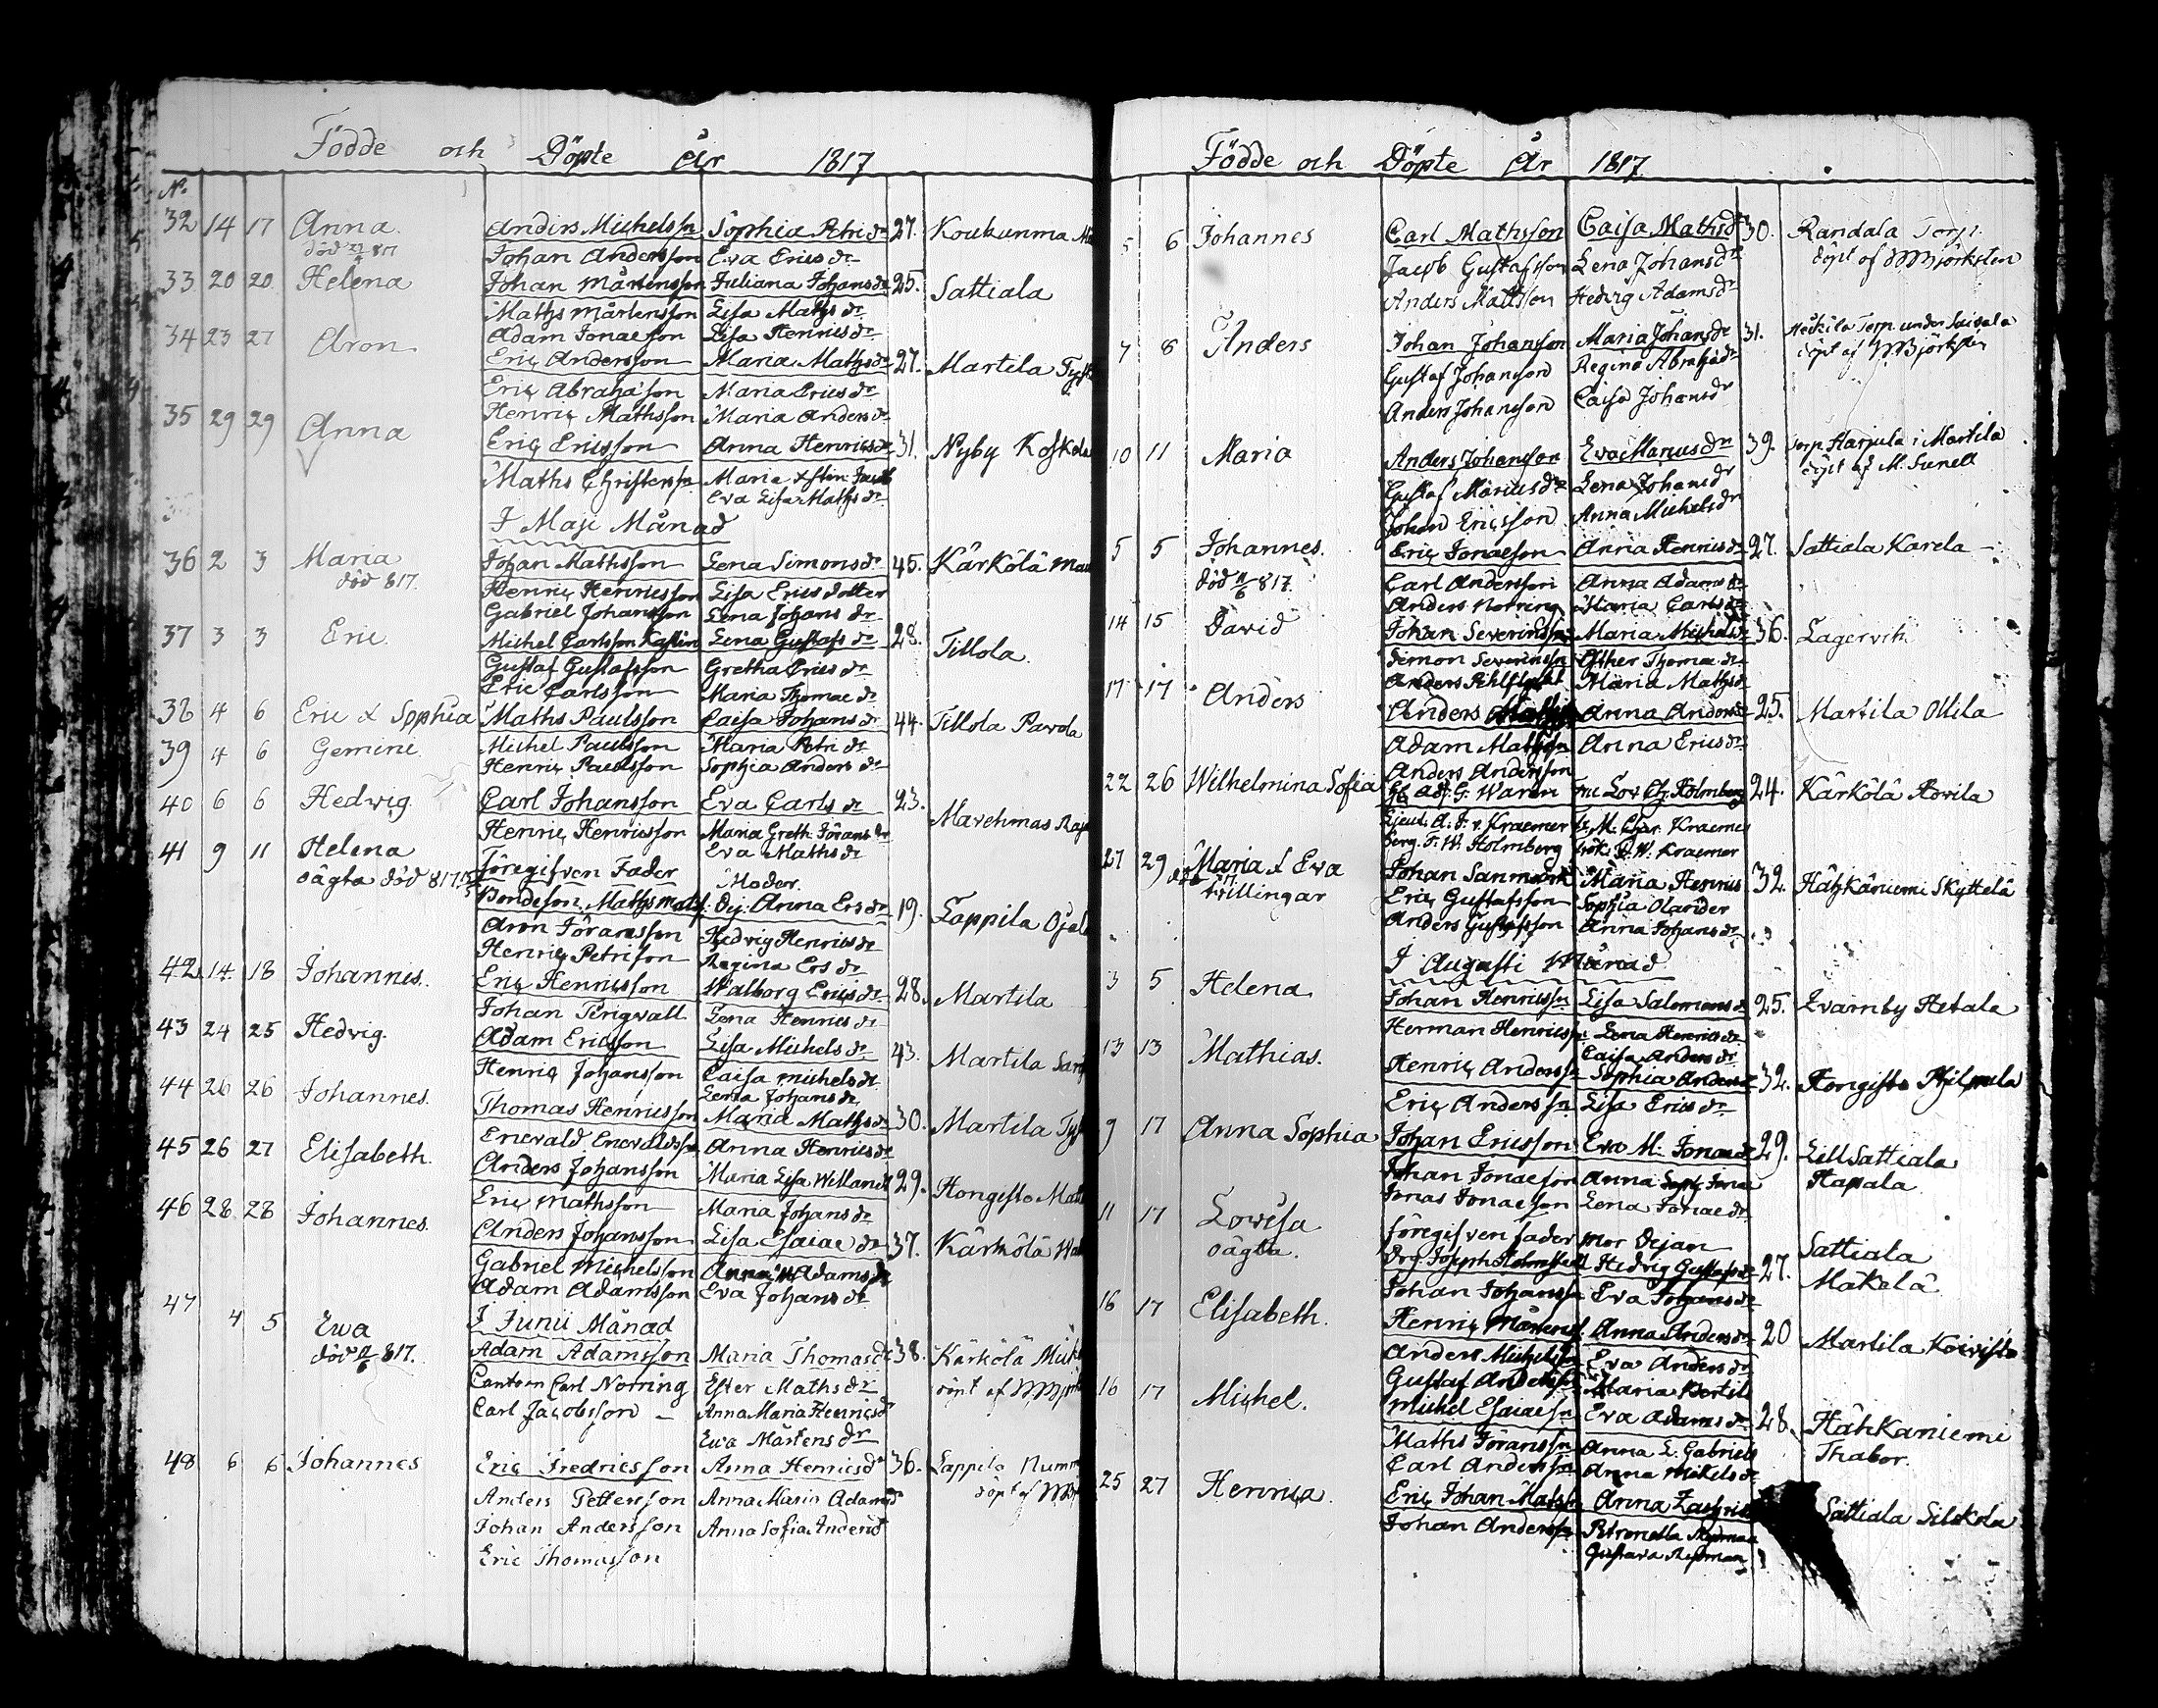 Födde och Döpte År 1817
No
32 14 17 Anna Anders Michelss:n Sophia Petri dr 27. Koukunma
död 817 Johan Andersson Eva Erics dr
33 20 20 Helena Johan Mårtensson Juliana Johans dr 25. Sattiala
Maths Mårtensson Lisa Maths dr
Adam Jonaeson Lisa Henrics dr
34 23 27 Aron Eric Andersson Maria Maths dr 27. Martila
Eric Abrahason Maria Erics dr
Henric Mathsson Maria Anders dr
35 29 29 Anna Eric Ericsson Anna Henrics dr 31. Nyby Koskela
Maths Christerss:n Maria
Eva Lisa Maths dr
I Maji Månad
36 2 3 Maria Johan Mathsson Lena Simons dr 45. Kärkölä
död 817. Henric Henricsson Lisa Erics dotter
Gabriel Johansson Lena Johans dr
37 3 3 Eric Michel Carlsson Lena Gustafs dr 28. Tillola.
Gustaf Gustafsson Gretha Erics dr
Eric Carlsson Maria Thomae dr
38 4 6 Eric & Sophia Maths Paulsson Caisa Johans dr 44. Tillola Pavola
39 4 6 Gemini Michel Paulsson Maria Petri dr
Henric Paulsson Sophia Anders dr
40 6 6 Hedwig Carl Johansson Eva Carls dr 23. Marehmas
Henric Henricsson Maria Greth. Jörans dr
Eva Maths dr
41 9 11 Helena Föregifven Fader Moder.
oägta död 817 Bondeson. Maths Dej. Anna Ers dr 19. Lappila
Aron Jöransson Hedvig Henrics dr
Henric Petrison Regina Ers dr
42 14 18 Johannes. Eric Henricsson Walborg Erics dr 28. Martila
Johan Perigvall Lena Henrics dr
43 24 25 Hedvig. Adam Ericsson Lisa Michels dr 43. Martila
Henric Johansson Caisa Michels dr
Lena Johans dr
44 26 26 Johannes. Thomas Henricsson Maria Maths dr 30. Martila
Enevald Enevaldss:n Anna Henrics dr
45 26 27 Elisabeth. Anders Johansson Maria Lisa 29. Hongisto
Eric Mathsson Maria Johans dr
46 28 28 Johannes. Anders Johansson Lisa Esaiae dr 37. Kärkölä
Gabriel Michelsson Anna Adams dr
Adam Adamsson Eva Johans dr
I Junii Månad
47 4 5 Ewa Adam Adamsson Maria Thomas dr 38. Kärkölä
död 817. Cantorn Carl Norring Ester Maths dr döpt af
Carl Jacobsson Anna Maria Henrics dr
Ewa Mårtens dr
48 6 6 Johannes Eric Fredricsson Anna Henrics dr 36. Lappila
Anders Pettersson Anna Maria Adams dr döpt af
Johan Andersson Anna Sofia Anders dr
Eric Thomasson
Födde och Döpte År 1817.
5 6 Johannes Carl Mathsson Caisa Maths dr 30. Randala Torp.
Jacob Gustafsson Lena Johans dr döpt af M Björksten
Anders Mattsson Hedvig Adams dr
7 8 Anders Johan Johansson Maria Johans dr 31. Heckila Torp. under
Gustaf Johansson Regina Abraha dr döpt af M Björksten
Anders Johansson Caisa Johans dr
10 11 Maria Anders Johansson Eva Marcus dr 39. Torp. Harjula i Martila
Gustaf Lena Johans dr döpt af M. Sunell
Johan Ericsson Anna Michels dr
5 5 Johannes. Eric Jonaeson Anna Henrics dr 27. Sattiala Karela
död 817. Carl Andersson Anna Adams dr
Anders Norring Maria Carls dr
14 15 David Johan Severinss:n Maria Michels dr 36. Lagervik
Simon Severinss:n Esther Thomae dr
Anders Maria Maths dr
17 17 Anders Anders Anna Anders dr 25. Martila Ollila
Adam Mathss:n Anna Erics dr
Anders Andersson
22 26 Wilhelmina Sofia Adj. G. Waren Fru Lov. Holmberg 24. Kärkölä Hovila
Lieut. A. F. v. Kraemer Fr. M. Kraemer
Serg. F. W. Holmberg Frök. Kraemer
27 29 Maria & Eva Johan Sanmark Maria Henrics 32. Hähkäniemi Skyttelä
tvillingar Eric Gustafsson Sophia Olander
Anders Gustafsson Anna Johans dr
I Augusti Månad
3 5 Helena Johan Henricss:n Lisa Salomons dr 25. Qvarnby Hetala
Herman Henricss:n Lena Henrics dr
Caisa Anders dr
13 13 Mathias. Henric Anderss:n Sophia Anders dr 32. Hongisto
Eric Anderss:n Lisa Erics dr
9 17 Anna Sophia Johan Ericsson Eva M. Jonae dr 29. Lill Sattiala
Johan Jonaeson Anna Soph. Jonae Hapala
Jonas Jonaeson Lena Jonae dr
11 17 Lovisa föregifven fader mor Dejan Sattiala
oägta. Drg. Joseph Hedvig Gustafs dr 27. Mäkelä
Johan Johanss:n Eva Johans dr
16 17 Elisabeth. Henric Anna Anders dr 20 Martila Koivisto
Anders Michelss:n Eva Anders dr
Gustaf Anderss:n Maria Bertils
16 17 Michel. Michel Esaiaes:n Eva Adams dr 28. Hähkäniemi
Maths Jöranss:n Anna L. Gabriels Thabor.
Carl Anderss:n Anna Mikels dr
25 27 Henrica. Eric Johan Anna Sattiala Silokola
Johan Anderss:n Petronella
Gustava